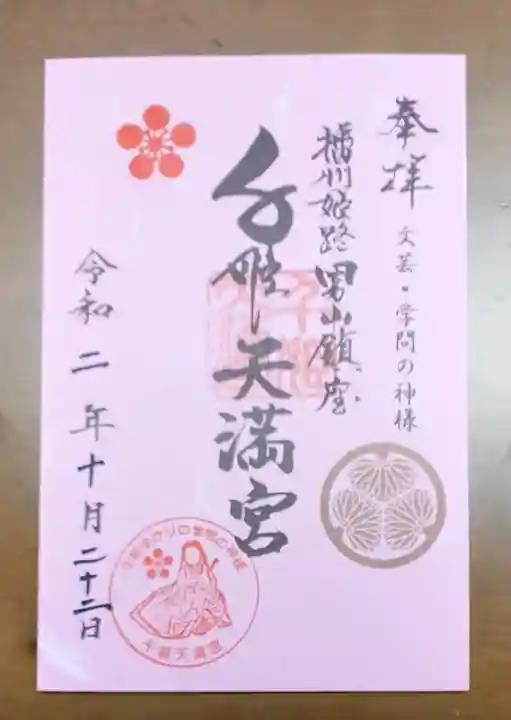 奉拝
文芸・学問の神様
播州姫路男山鎮座
千姫天満宮
令和二年十月二十二日
千姫天満宮